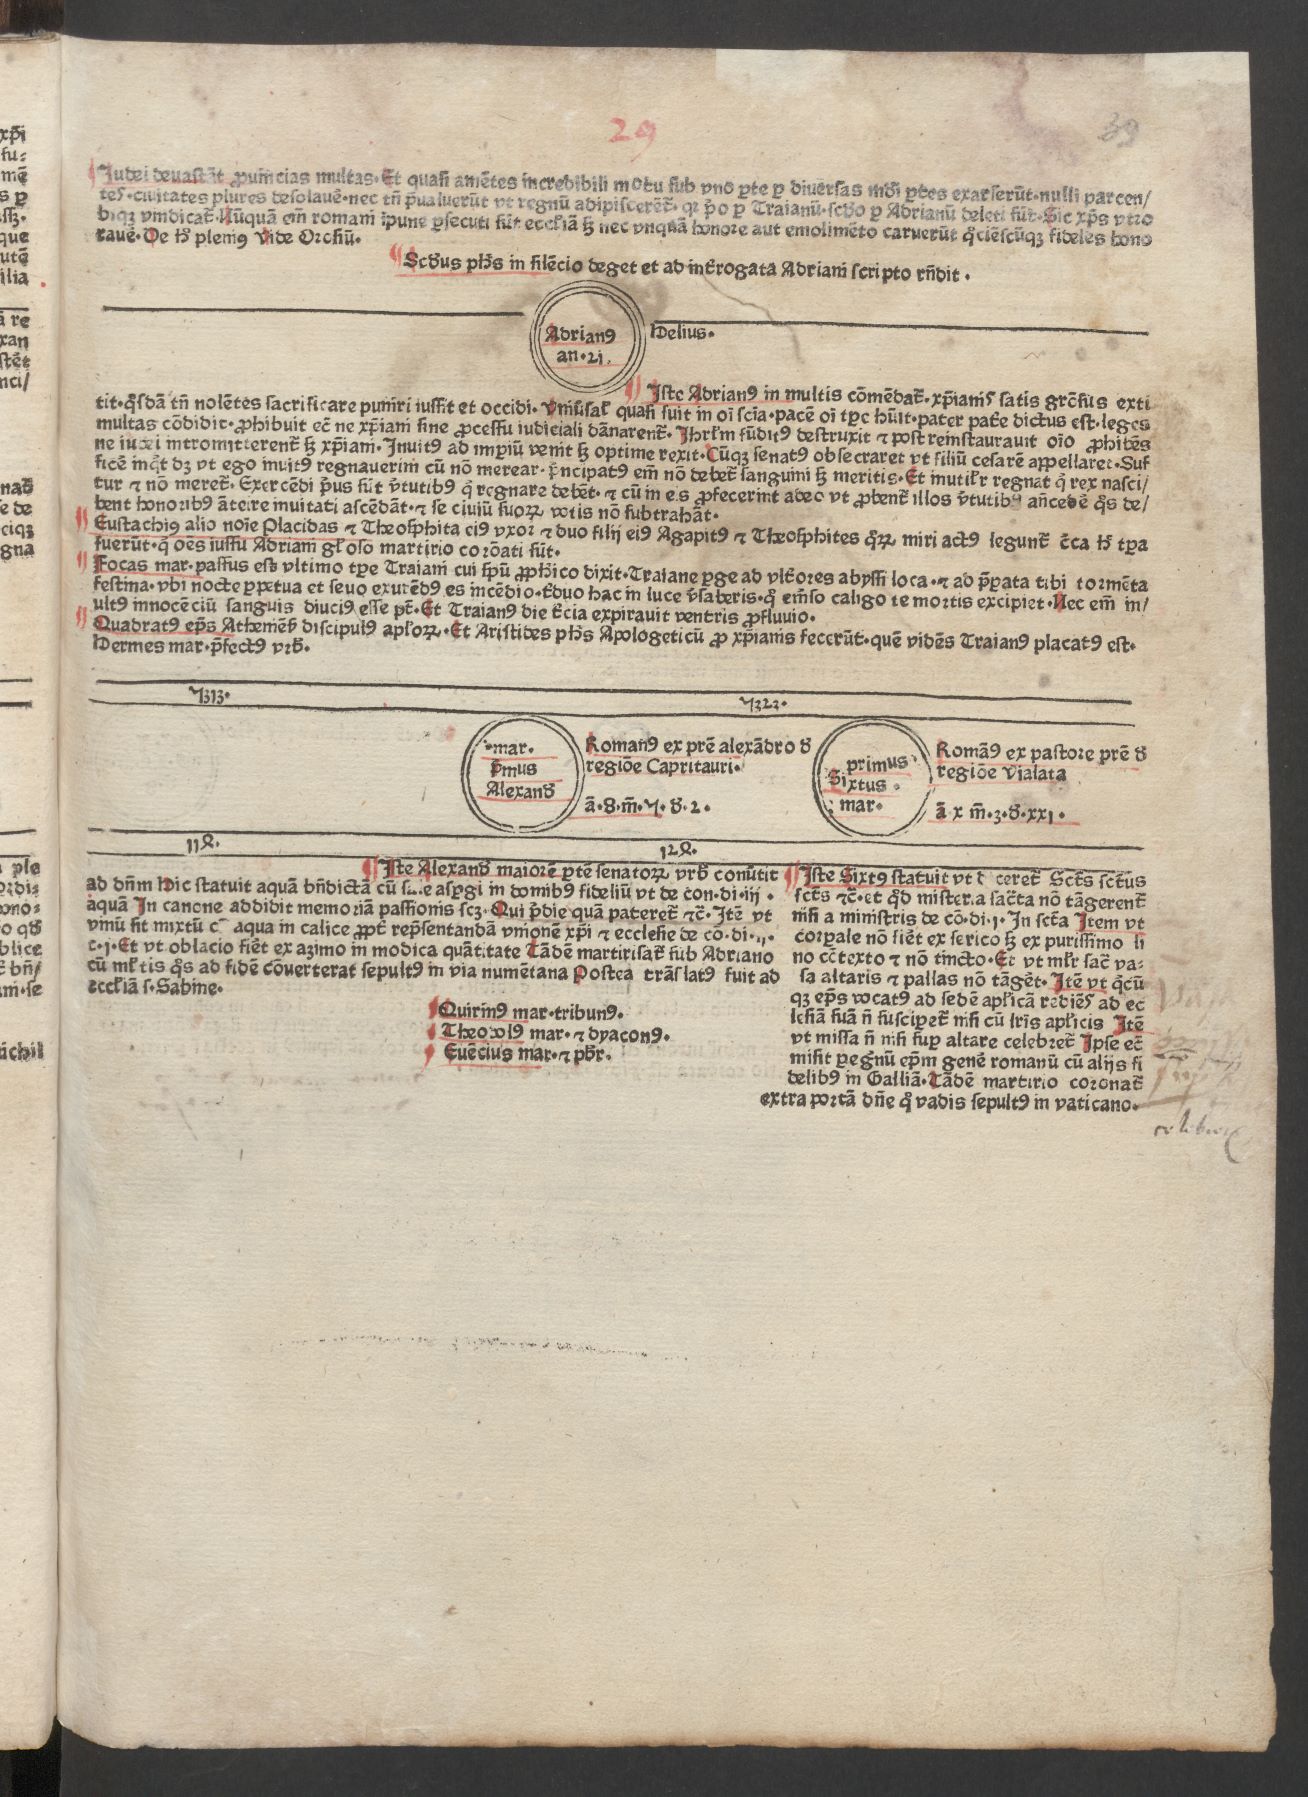 29
39
¶Iudei deuastāt ꝓuincias multas. Et quasi amētes incredibili motu sub vno ꝑte ꝑ diuersas mūdi ꝑtes exarserūt. nulli parcen/
tes. ciuitates plures desolauē. nec tn̄ p̄ualuerūt vt regnū adipiscerēt̄. qr p̄o ꝑ Traianū. scd̄o ꝑ Adrianū deleti sūt. Sic xp̄s vtro
biqꝫ vindicat̄. Nūquā em̄ romani īpune ꝑsecuti sūt eccl̄iā sꝫ nec vnquā honore aut emolimēto caruerūt q̄ciēscūqꝫ fideles hono
rauē. De h̄ plenius vide Orosiū.
¶Scd̄us ph̄s in silēcio deget et ad int̄rogata Adriani scripto rn̄dit.
Adrianꝯ
an. 21.
Helius.
¶ Iste Adrianꝯ in multis cōmēdat̄. xp̄ianis satis grōsus exti
tit. q̄sdā tn̄ nolētes sacrificare puniri iussit et occidi. Vniūsal̄ quasi fuit in oī scīa. pacē oī tꝑe hūit. pater pat̄e dictus est. leges
multas cōdidit. ꝓhibuit ec̄ ne xp̄iani sine ꝓcessu iudiciali dānarent̄. Ihrl̄m fūditꝯ destruxit ⁊ post reinstaurauit oīo ꝓhibēs
ne iudei intromitterent̄ sꝫ xp̄iani. Inuitꝯ ad imꝑiū venit sꝫ optime rexit. Cūqꝫ senatꝯ obsecraret vt filiū cesarē appellaret. Suf
ficē inq̄t dꝫ vt ego inuitꝯ regnauerim cū nō merear. p̄ncipatꝯ em̄ nō debet̄ sanguini sꝫ meritis. Et inutilr̄ regnat q̄ rex nasci/
tur ⁊ nō meret̄. Exercēdi p̄us sūt v̄tutibꝯ q̄ regnare debēt. ⁊ cū in eis ꝓfecerint adeo vt ꝓbent̄ illos v̄tutibꝯ an̄cedē q̄s de/
bent honoribꝯ āteire inuitati ascēdāt. ⁊ se ciuiū suoꝝ votis nō subtrahāt.
¶ Eustachiꝯ alio noīe Placidas ⁊ Theosphita eiꝯ vxor ⁊ duo filij eiꝯ Agapitꝯ ⁊ Theosphites q̄ꝝ miri actꝯ legunt̄ c̄ca h̄ tꝑa
fuerūt. q̄ oēs iussu Adriani gl̄oso martirio corōati sūt.
¶ Focas mar. passus est vltimo tꝑe Traiani cui sp̄u ꝓph̄ico dixit. Traiane ꝑge ad vlt̄ores abyssi loca. ⁊ ad p̄ꝑata tibi tormēta
festina. vbi nocte ꝑpetua et seuo exurēdꝯ es incēdio. t̄duo hac in luce v̄saberis. q̄ emēso caligo te mortis excipiet. Nec em̄ in/
ultꝯ innocēciū sanguis diuciꝯ esse pt̄. Et Traianꝯ die t̄cia expirauit ventris ꝓfluuio.
¶ Quadratꝯ ep̄s Atheniēs̄ discipulꝯ apl̄oꝝ. Et Aristides ph̄s Apologeticū ꝓ xp̄ianis fecerūt. quē vidēs Traianꝯ placatꝯ est.
Hermes mar. p̄fectꝯ vrb̄.
7313.
7323.
.mar.
p̄mus
Alexand̄
Romanꝯ ex pr̄e alexādro d̄
regiōe Capritauri.
ā. 8. m̄. 7. d̄. 2.
primus
Sixtus.
mar.
Romāꝯ ex pastore pr̄e d̄
regiōe Vialata
ā x m̄. 3. d̄. xxi.
118.
128.
¶Iste Alexand̄ maiorē ꝑtē senatoꝝ vrb̄ conūtit
ad dn̄m Hic statuit aquā bn̄dictā cū sale asꝑgi in domibꝯ fideliū vt de con. di. iij.
aquā In canone addidit memoriā passionis scꝫ. Qui p̄die quā pateret̄ ⁊c̄. Itē vt
vinū sit mixtū cū aqua in calice ꝓpt̄ repn̄sentandā vnionē xp̄i ⁊ ecclesie de cō. di. ij.
c. j. Et vt oblacio fiēt ex azimo in modica quātitate Tādē martirisat̄ sub Adriano
cū ml̄tis q̄s ad fidē cōuerterat sepultꝯ in via numētana Postea trāslatꝯ fuit ad
eccl̄iā s. Sabine.
¶Quirinꝯ mar. tribunꝯ.
¶ Theodolꝯ mar. ⁊ dyaconꝯ.
¶ Euēcius mar. ⁊ pb̄r.
¶Iste Sixtꝯ statuit vt diceret̄ Sct̄s sct̄us
sct̄s ⁊c̄. et q̄d misteria sac̄ta nō tāgerent̄
nisi a ministris de cō. di. j. In sct̄a Item vt
corpale nō fiēt ex serico sꝫ ex purissimo li
no cōtexto ⁊ nō tincto. Et vt ml̄r sac̄ va:
sa altaris ⁊ pallas nō tāgēt. Itē vt q̄cū
qꝫ ep̄s vocatꝯ ad sedē apl̄icā rediēs ad ec
lesiā suā n̄ suscipet̄ nisi cū lr̄is apl̄icis Itē
vt missa n̄ nisi suꝑ altare celebret̄ Ipse ec̄
misit ꝑegrinū ep̄m genē romanū cū alijs fi
delibꝯ in Galliā. Tādē martirio coronat̄
extra portā dn̄e q̄ vadis sepultꝯ in vaticano.